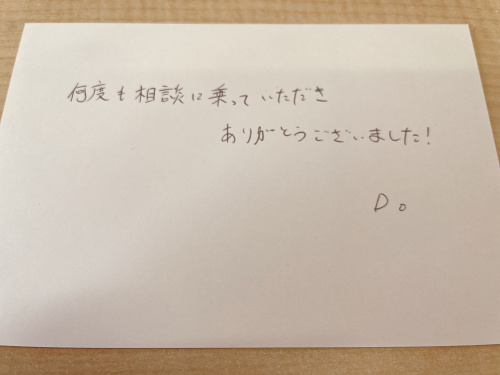 何度も相談に乗っていただき
ありがとうございました!
Do